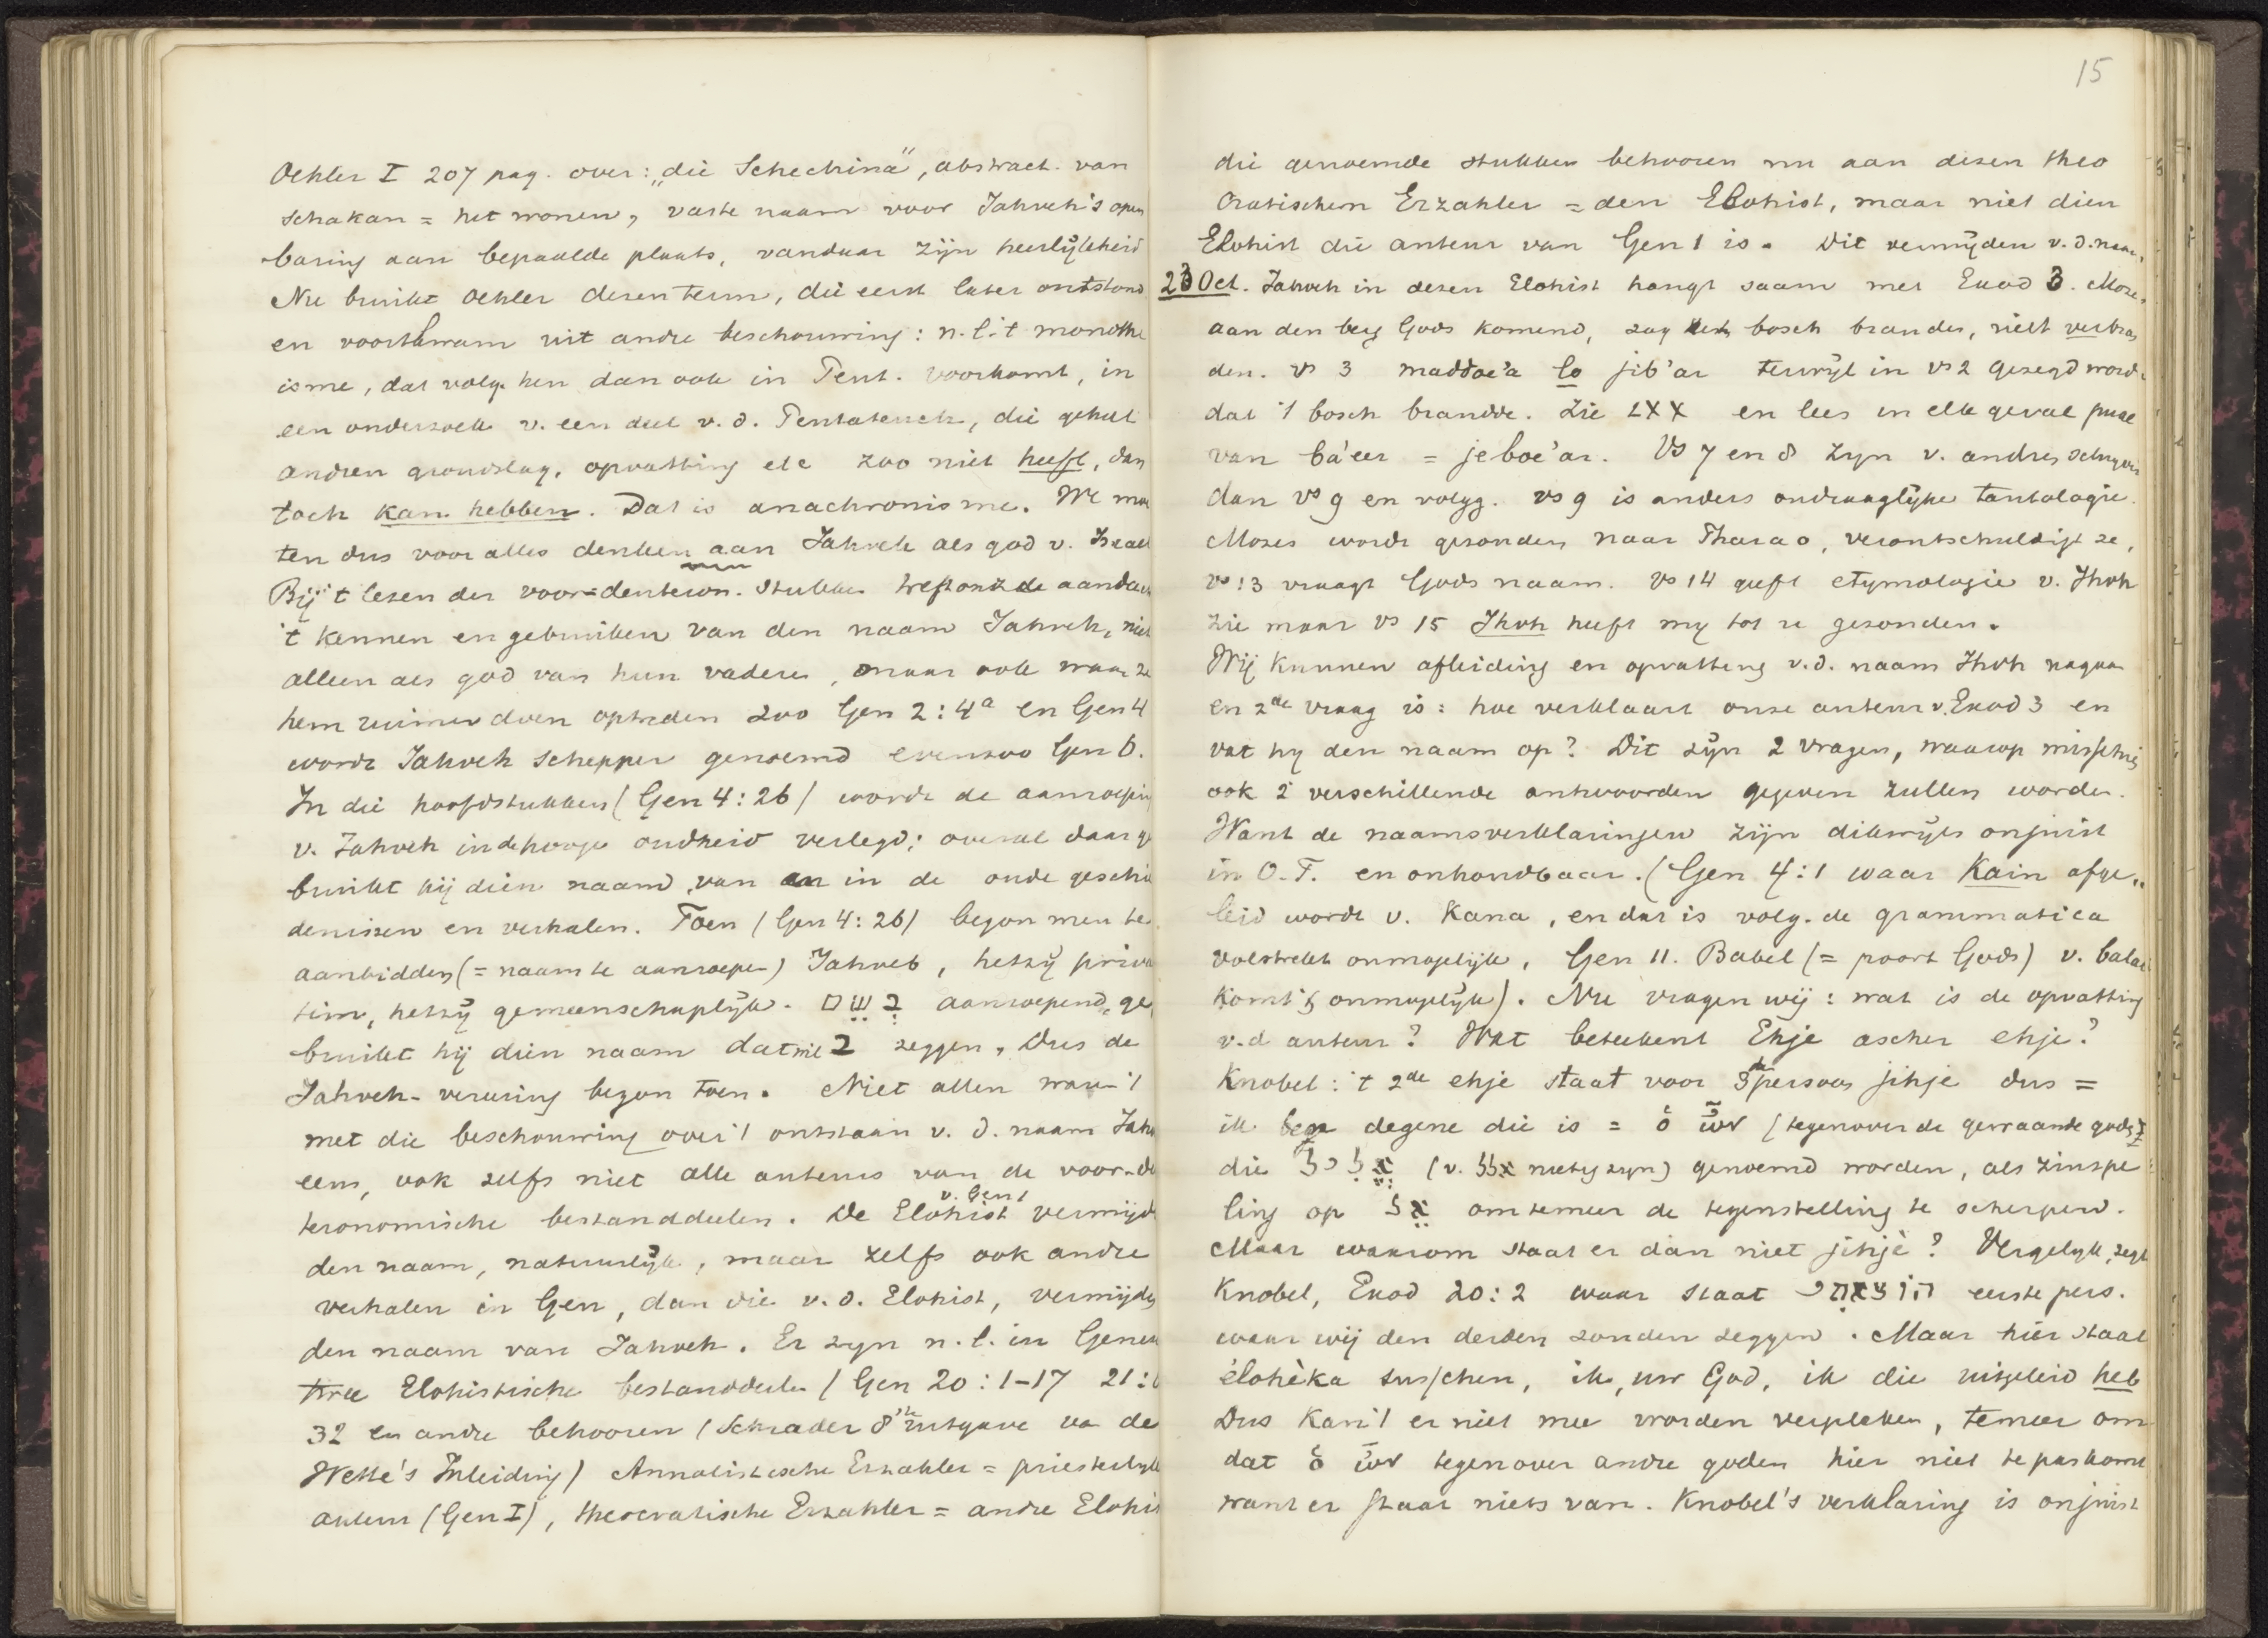 Oehler I 207 pag. over: „die Schechina", abstract. van
schakan = het wonen, vaste naam voor Jahveh's open
baring aan bepaalde plaats, vanduar zijn heerlijkheid
Nu bruikt Oehler dezen term, die eerst later ontstond
en voortkwam uit andre beschouwing: n.l. 't monothe
isme, dat volg. hen dan ook in Pent. voorkomt, in
een onderzoek v. een deel v. d. Pentateuch, die geheel
andren grondslag, opvatting etc zoo niet heeft, dan
toch kan hebben. Dat is anachronisme. We moe
ten dus voor alles denken aan Jahveh als god v. Israel
Bij 't lezen der voor-deuteron. stukken treft ons de aandach
't kennen en gebruiken van den naam Jahveh, niet
alleen als god van hun vaderen, maar ook waar ze
hem ruimer doen optreden zoo Gen 2:4a en Gen 4
wordt Jahveh schepper genoemd evenzoo Gen 6.
In die hoofdstukken (Gen 4:26) wordt de aanroeping
v. Jahveh in de hooge oudheid verlegd; overal daar ge
bruikt hij dien naam, van an in de oude geschie
denissen en verhalen. Toen (Gen 4:26) begon men te
aanbidden (= naam te aanroepen) Jahveh, hetzij priva
tim, hetzij gemeenschaplijk. בשם aanroepend, ge
bruikt hij dien naam dat wil ב zeggen, Dus de
Jahveh-vereering begon toen. Niet allen waren 't
met die beschouwing over 't ontstaan v. d. naam Jahv
eens, ook zelfs niet alle auteurs van de voor-de
teronomische bestanddeelen. De Elohist v. Gen 1 vermijdt
den naam, natuurlijk, maar zelfs ook andre
verhalen in Gen, dan die v. d. Elohist, vermijden
den naam van Jahveh. Er zyn n.l. in Genesis
twee Elohistische bestanddeelen (Gen 20:1-17 21:6
32 en andre behooren (Schrader 8ste uitgave va de
Wette's Inleiding) Annalistische Erzahler = priesterlyke
auteur (Gen I), theocratische Erzahler = andre Elohis
15
die genoemde stukken behooren nu aan dezen theo
cratischen Erzahler = den Elohist, maar niet dien
Elohist die auteur van Gen 1 is. Dit vermijden v. d. naam
23 Oct. Jahveh in dezen Elohist hangt saam met Exod 3. Mozes
aan den berg Gods komend, zag het bosch branden, niet verbran
den. vs 3 maddoe'a lo jib'ar terwijl in vs 2 gezegd wordt
dat 't bosch brandde. Zie LXX en lees in elk geval pual
van ba'eer = jeboe'ar. Vs 7 en 8 zyn v. andren schryver
dan vs 9 en volgg. vs 9 is anders ondraaglijke tautologie.
Mozes wordt gezonden naar Pharao, verontschuldigt ze,
vs 13 vraagt Gods naam. vs 14 geeft etymologie v. Jhvh
zie maar vs 15 Jhvh heeft my tot u gezonden.
Wij kunnen afleiding en opvatting v.d. naam Jhvh nagaan
en 2de vraag is: hoe verklaart onze auteur v. Exod 3 en
vat hy den naam op? Dit zijn 2 vragen, waarop misschien
ook 2 verschillende antwoorden gegeven zullen worden.
Want de naamsverklaringen zijn dikwijls onjuist
in O.T. en onhoudbaar. (Gen 4:1 waar Kain afge„
leid wordt v. Kana, en dat is volg. de grammatica
volstrekt onmogelijk, Gen 11. Babel (= poort Gods) v. balal
komt is onmogelijk). Nu vragen wij: wat is de opvatting
v.d auteur? Wat beteekent Ehje ascher ehje?
Knobel: 't 2de ehje staat voor 3de persoon jihje dus =
ik ben degene die is = ὁ ὤν (tegenover de gewaande goden
die אלילי (v. אלל nietig zyn) genoemd worden, als zinspe
ling op אל om temeer de tegenstelling te scherpen.
Maar waarom staat er dan niet jihjè? Vergelijk, zegt
Knobel, Exod 20:2 waar staat הוצאתי eerste pers.
waar wij den derden zouden zeggen. Maar hier staat
élohèka tusschen, ik, uw God, ik die uitgeleid heb
Dus kan 't er niet mee worden vergeleken, temeer om
dat ὁ ὤν tegenover andre goden hier niet te pas komt
want er staat niets van. Knobel's verklaring is onjuist